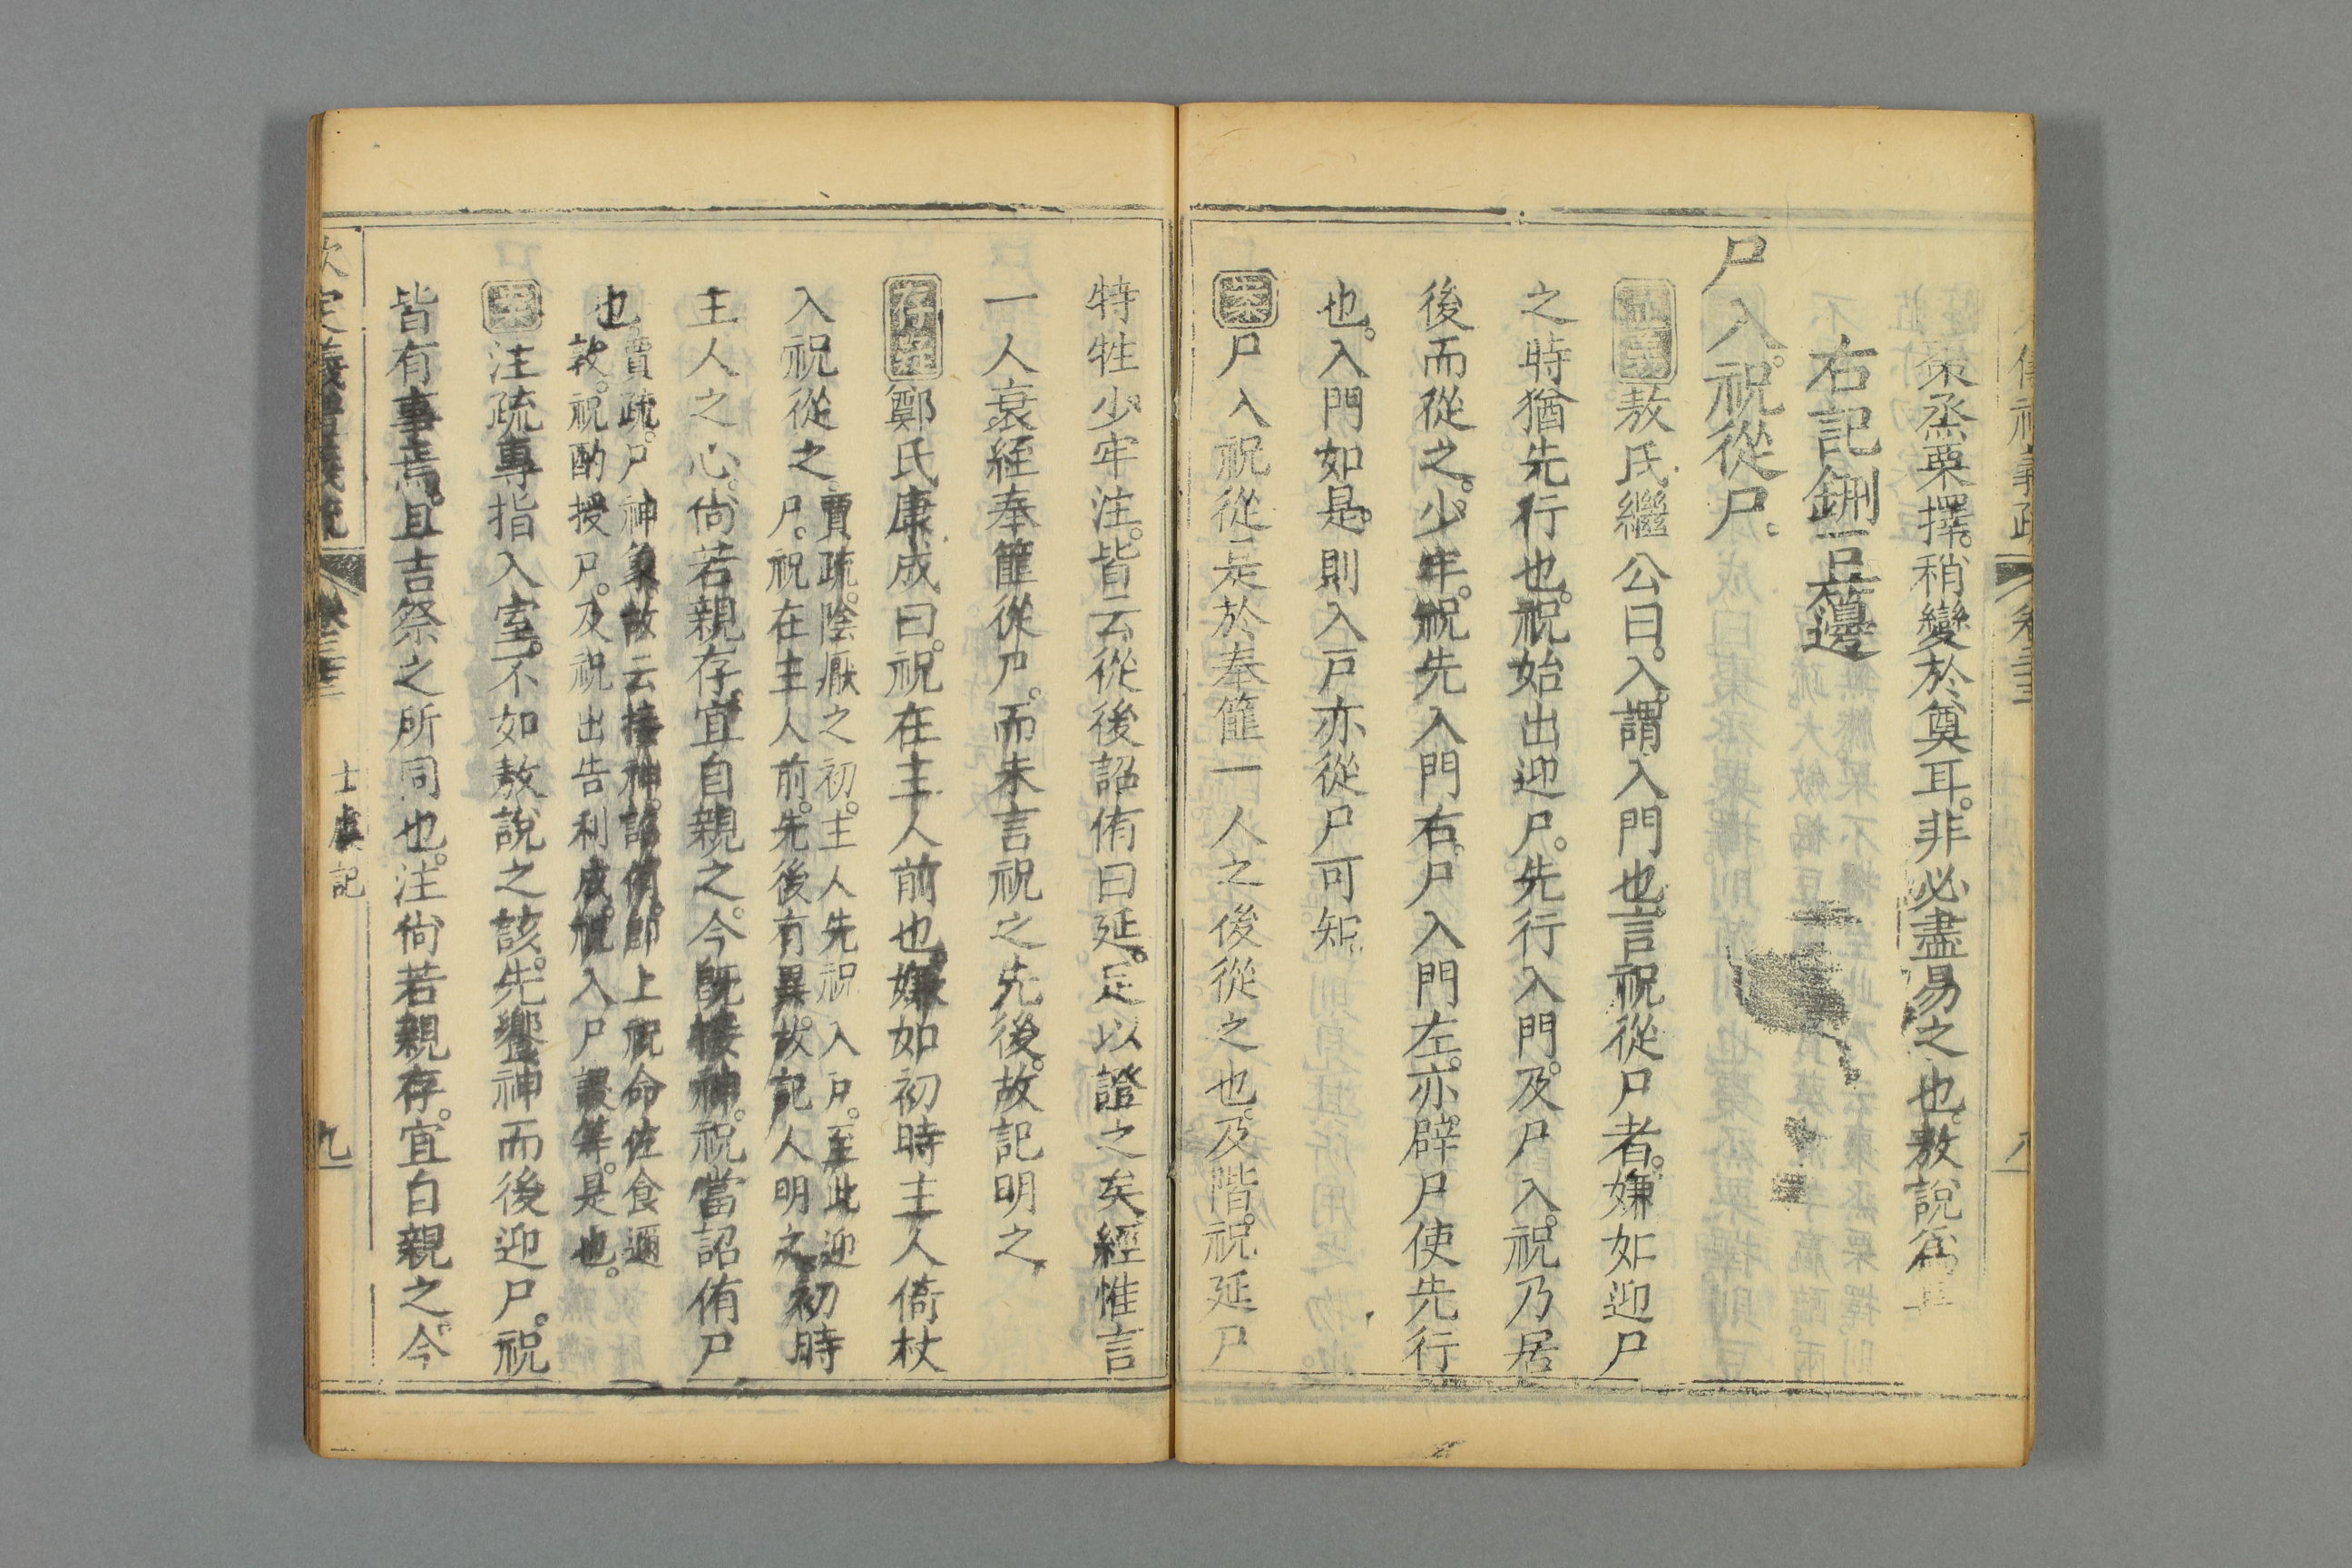 棗烝栗擇。稍變於奠耳。非必盡易之也。敖說徇
右記鉶芼籩
尸入。祝從尸。
正義 敖氏繼公曰。入。謂入門也。言祝從尸者。嫌如迎尸
之時猶先行也。祝始出迎尸。先行入門。及尸入。祝乃居
後而從之。少牢。祝先入門右。尸入門左。亦辟尸使先行
也。入門如是。則入戶亦從尸可知。
案 尸入祝從。是於奉篚一人之後從之也。及階。祝延尸
特牲少牢注。皆云從後詔侑曰延。足以證之矣。經惟言
一人衰絰奉篚從尸。而未言祝之先後。故記明之。
存疑 鄭氏康成曰。祝在主人前也。嫌如初時主人倚杖
入祝從之。賈疏。陰厭之初。主人先祝入戶。至此迎尸。祝在主人前。先後有異。故記人明之。初時
主人之心。尙若親存。宜自親之。今旣接神。祝當詔侑尸
也。賈疏。尸神象。故云接神。詔侑。卽上祝命佐食邇敦。祝酌授尸。及祝出告利成。祝入尸謖等。是也。
案 注疏專指入室。不如敖說之該。先饗神而後迎尸。祝
皆有事焉。且吉祭之所同也。注尙若親存。宜自親之。今
欽定義禮義疏 卷三十三 士虞記 九